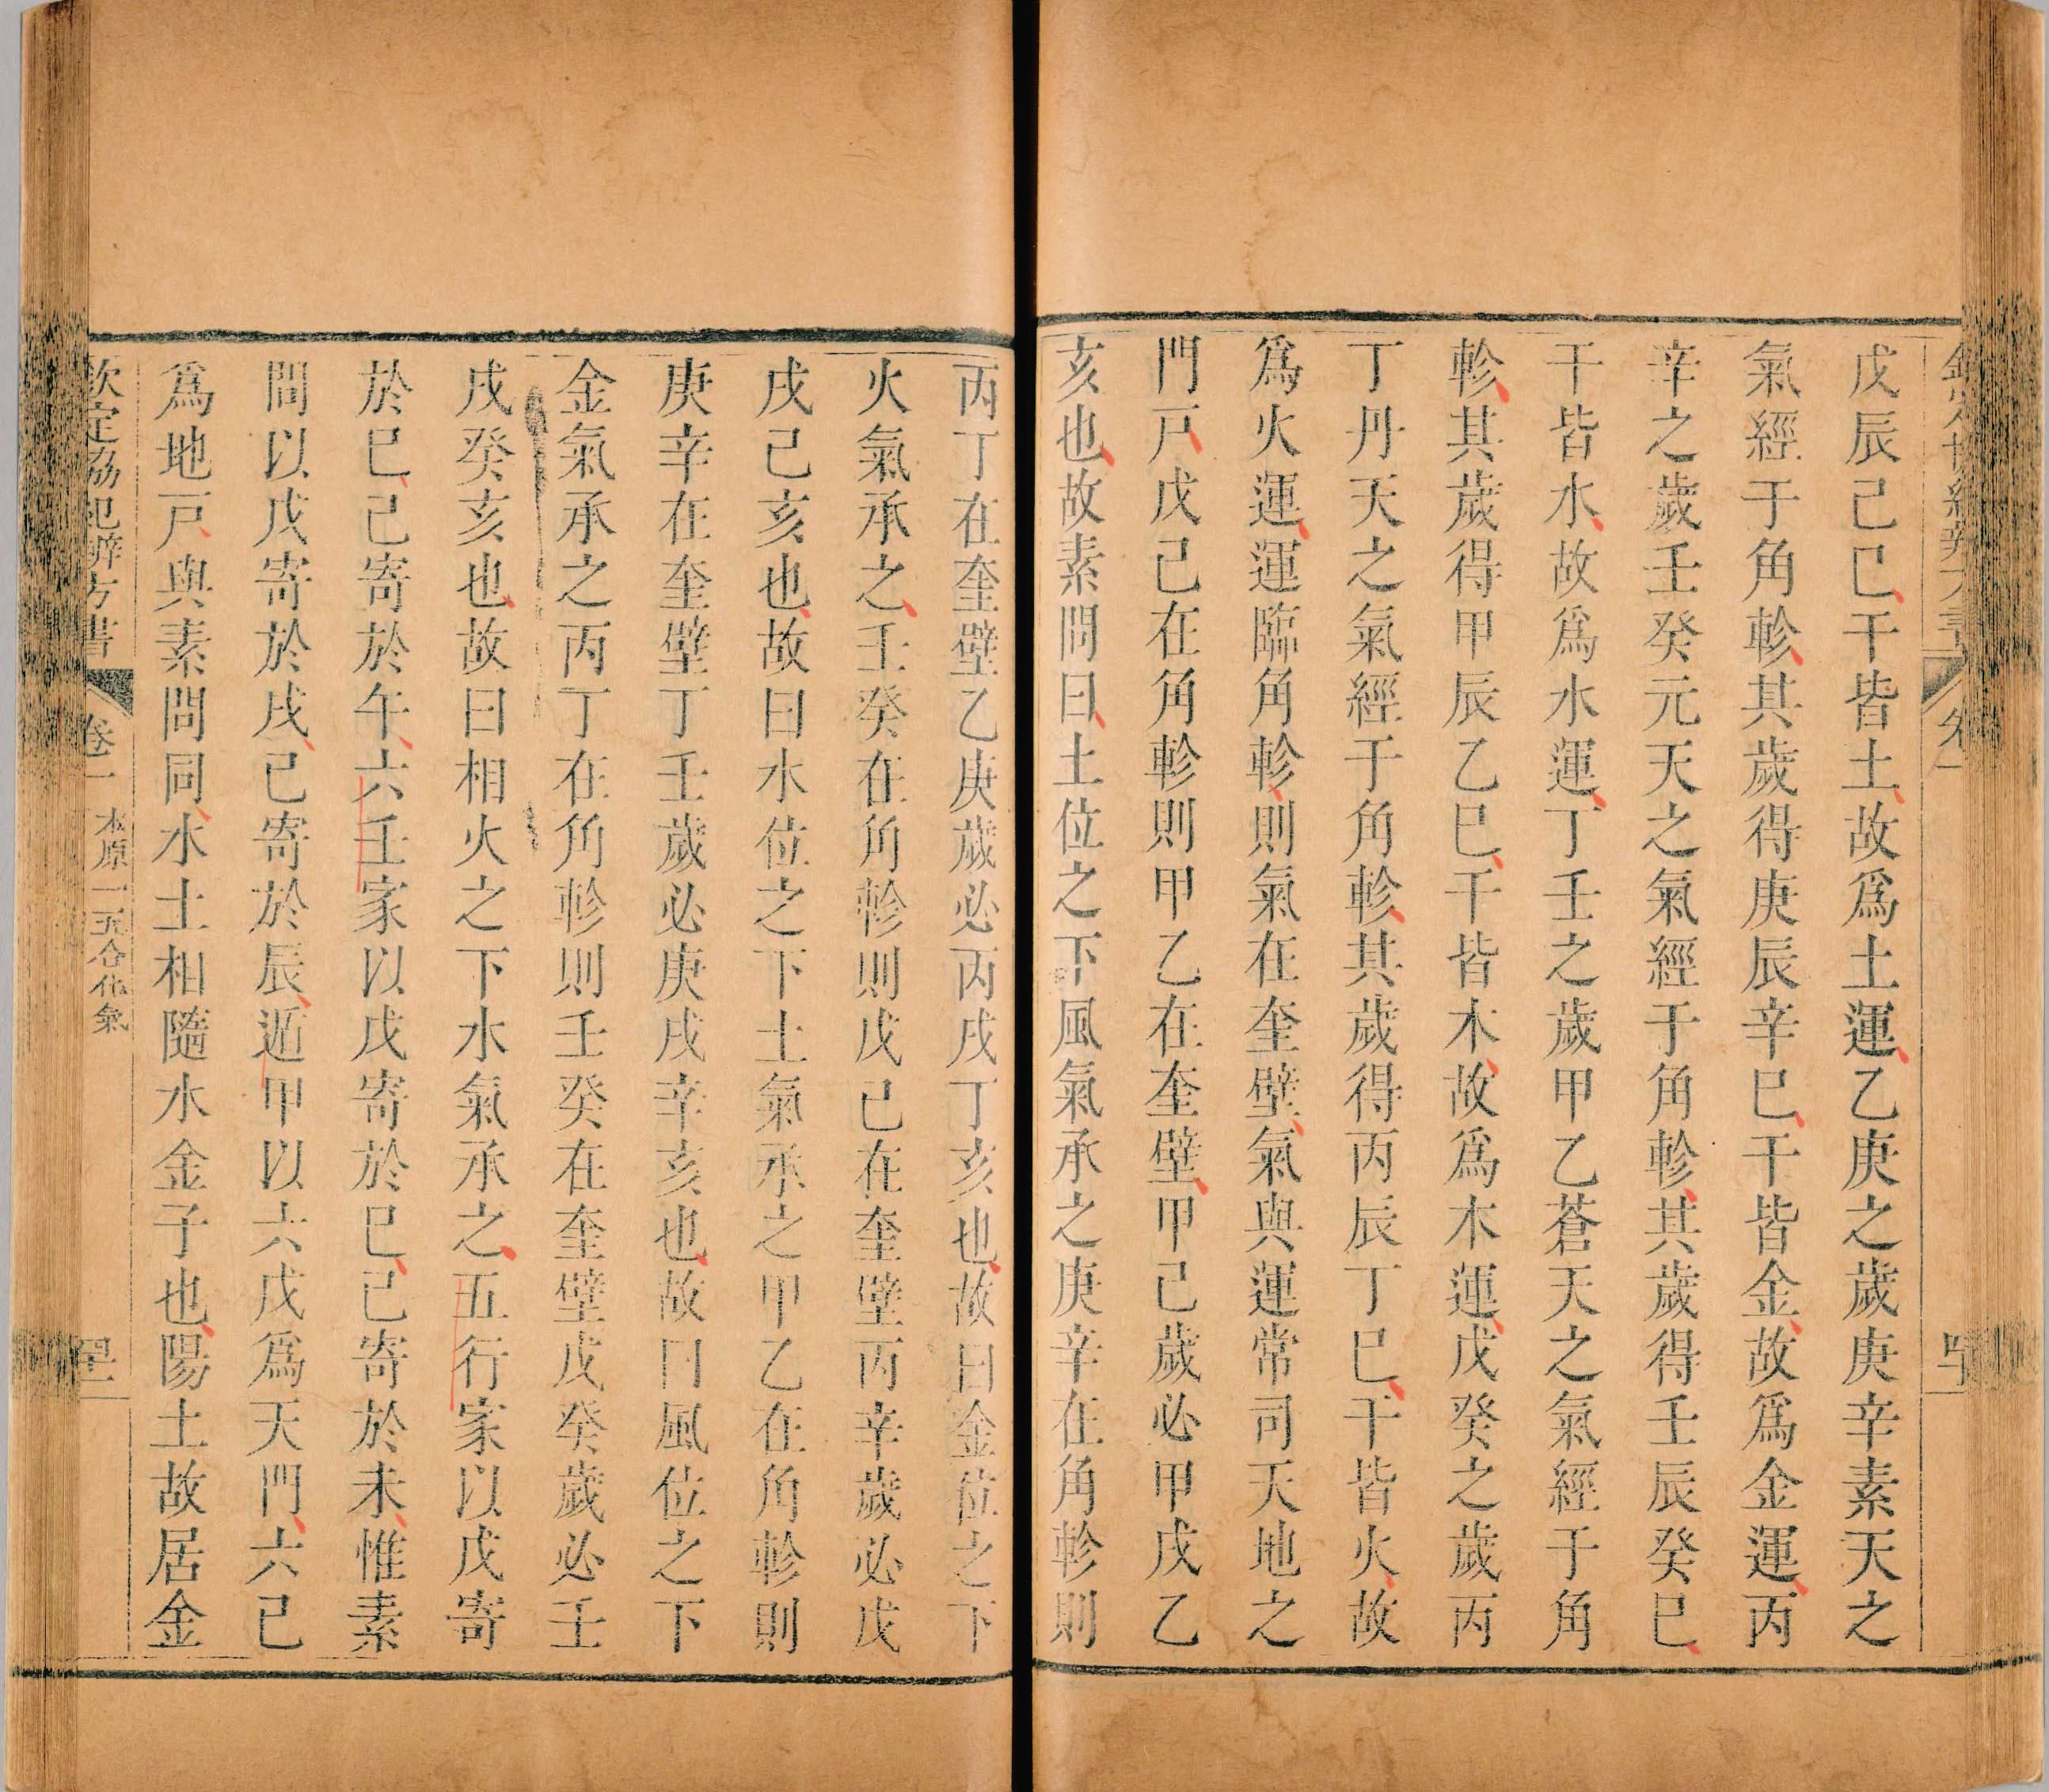 戊辰己巳干皆土故爲土運乙庚之歲庚辛素天之
氣經于角軫其歲得庚辰辛巳干皆金故爲金運丙
辛之歲壬癸元天之氣經于角軫其歲得壬辰癸巳
干皆水故爲水運丁壬之歲甲乙蒼天之氣經于角
軫其歲得甲辰乙巳干皆木故爲木運戊癸之歲丙
丁丹天之氣經于角軫其歲得丙辰丁巳干皆火故
爲火運運臨角軫則氣在奎壁氣與運常司天地之
門戸戊己在角軫則甲乙在奎壁甲己歲必甲戌乙
亥也故素問曰土位之下風氣承之庚辛在角軫則
丙丁在奎壁乙庚歲必丙戌丁亥也故曰金位之下
火氣承之壬癸在角軫則戊己在奎壁丙辛歲必戊
戌己亥也故曰水位之下土氣承之甲乙在角軫則
庚辛在奎壁丁壬歲必庚戌辛亥也故曰風位之下
金氣承之丙丁在角軫則壬癸在奎壁戊癸歲必壬
戌癸亥也故曰相火之下水氣承之五行家以戊寄
於巳己寄於午六壬家以戊寄於巳己寄於未惟素
問以戊寄於戌己寄於辰遁甲以六戊爲天門六己
爲地戸與素問同水土相隨水金子也陽土故居金
欽定協紀辨方書 卷一 本原一 五合化氣